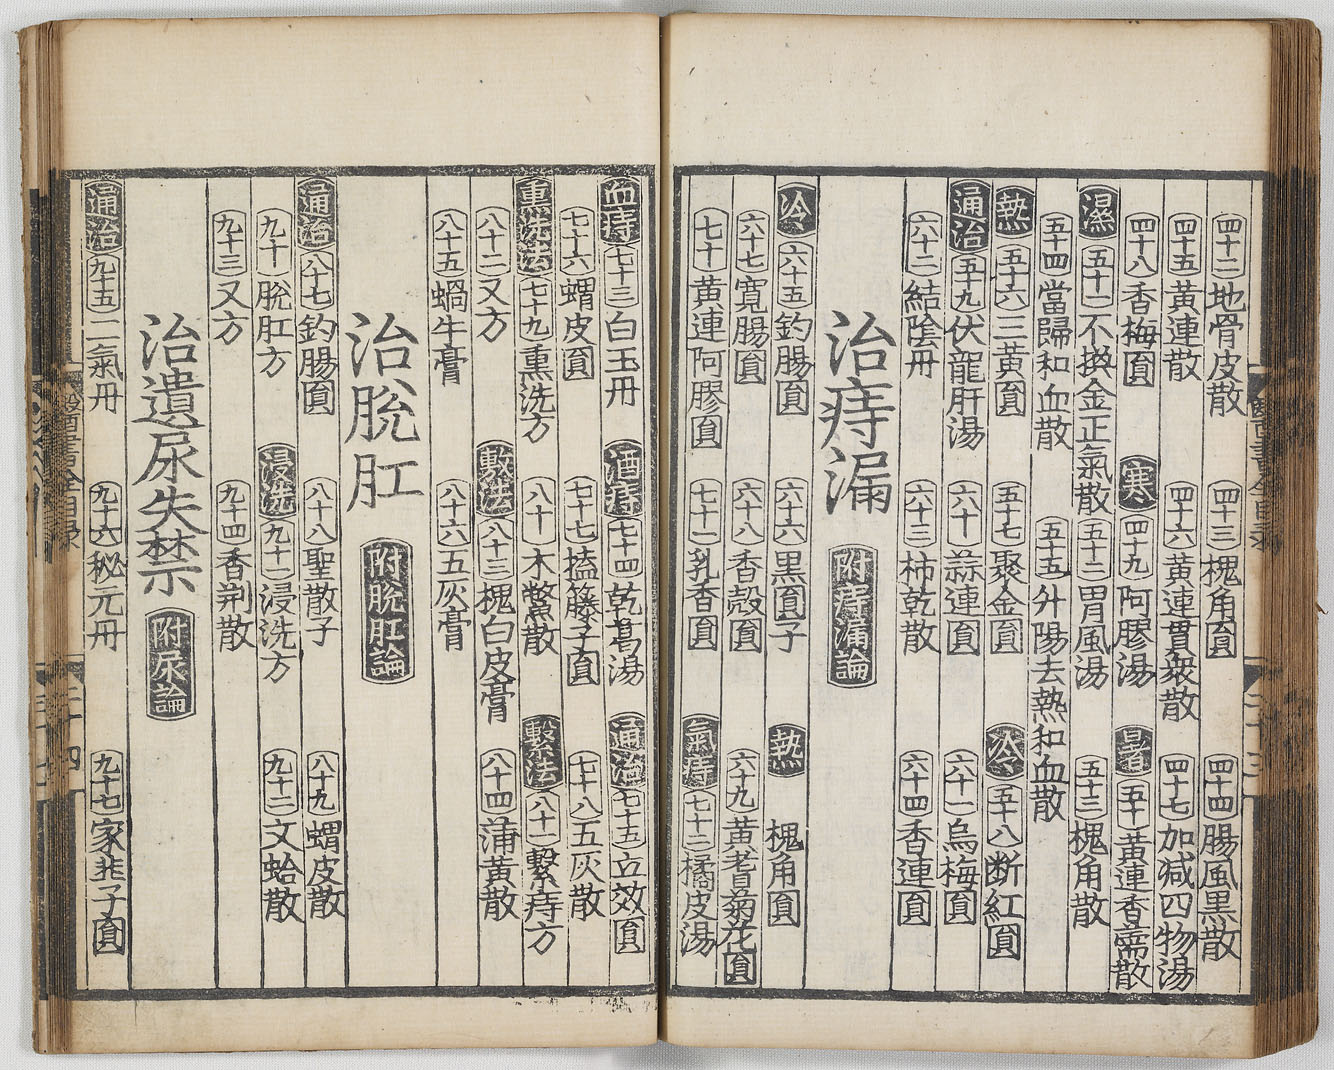 四十二地骨皮散 四十三槐角圓 四十四腸風黒散
四十五黄連散 四十六黄連貫衆散 四十七加减四物湯
四十八香梅圓 寒 四十九阿膠湯 暑 五十黄連香薷散
濕 五十一不換金正氣散 五十二胃風湯 五十三槐角散
五十四當歸和血散 五十五升陽去熱和血散
熱 五十六三黄圓 五十七聚金圓 冷 五十八断紅圓
通治 五十九伏龍肝湯 六十蒜連圓 六十一烏梅圓
六十二結陰丹 六十三柿乾散 六十四香連圓
治痔漏 附痔漏論
冷 六十五釣腸圓 六十六黒圓子 熱 槐角圓
六十七寛腸圓 六十八香殻圓 六十九黄耆菊花圓
七十黄連阿膠圓 七十一乳香圓 氣痔 七十二橘皮湯
血痔 七十三白玉丹 酒痔 七十四乾葛湯 通治 七十五立效圓
七十六蝟皮圓 七十七榼籐子圓 七十八五灰散
熏洗法 七十九熏洗方 八十木鱉散 繫法 八十一繫痔方
八十二又方 敷法 八十三槐白皮膏 八十四蒲黄散
八十五蝸牛膏 八十六五灰膏
治脱肛 附脱肛論
通治 八十七釣腸圓 八十八聖散子 八十九蝟皮散
九十脱肛方 浸洗 九十一浸洗方 九十二文蛤散
九十三又方 九十四香荆散
治遺尿失禁 附尿論
通治 九十五二氣丹 九十六秘元丹 九十七家韭子圓